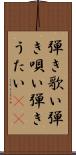 弾き歌い弾
き唄い弾き
うたい((